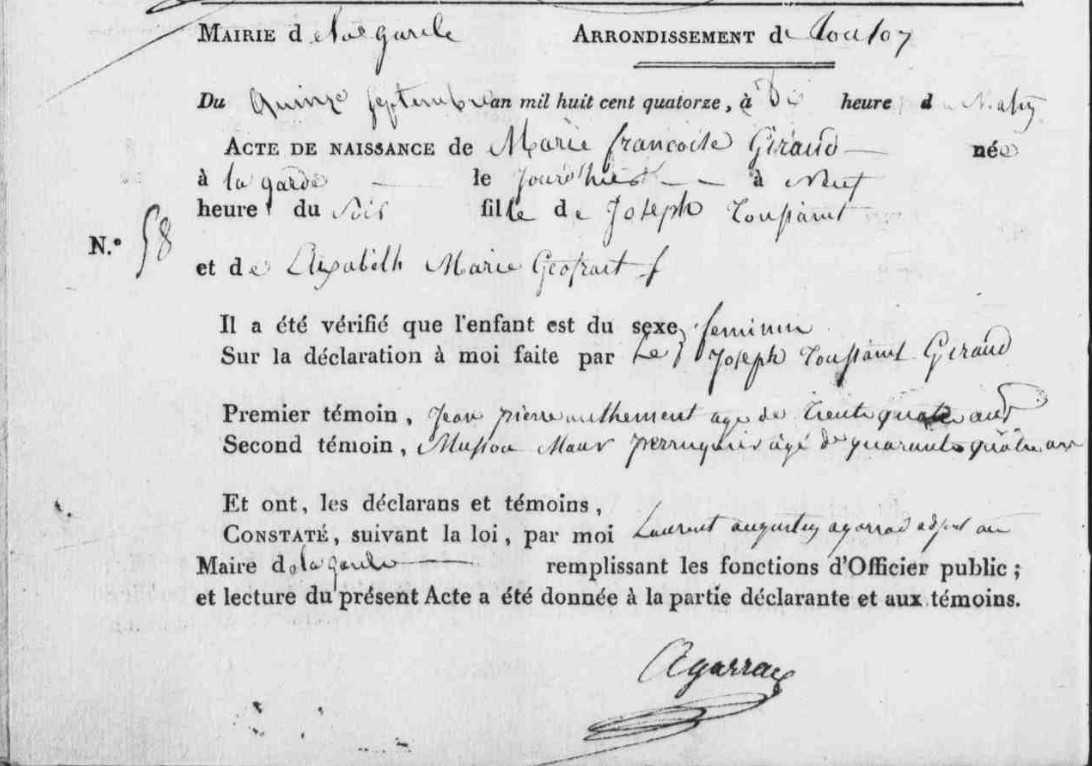 MAIRIE de la garde ARRONDISSEMENT de Toulon
Du quinze septembre an mil huit cent quatorze, à Dix heure du Matin
ACTE DE NAISSANCE de Marie francoise Giraud née
à la garde le jour d'hier à Neuf
heure du Soir fille de Joseph Toussaint
N.º 58
et de Elizabeth Marie Geofrait
Il a été vérifié que l'enfant est du sexe feminin
Sur la déclaration à moi faite par Le d Joseph Toussaint Giraud
Premier témoin, Jean pierre authement age de trente quatre ans
Second témoin, Maur perruquier âgé de quarante quatre an
Et ont, les déclarans et témoins,
CONSTATÉ, suivant la loi, par moi Laurent augustin agarrad adjoint au
Maire de la garde remplissant les fonctions d'Officier public;
et lecture du présent Acte a été donnée à la partie déclarante et aux témoins.
Agarrad